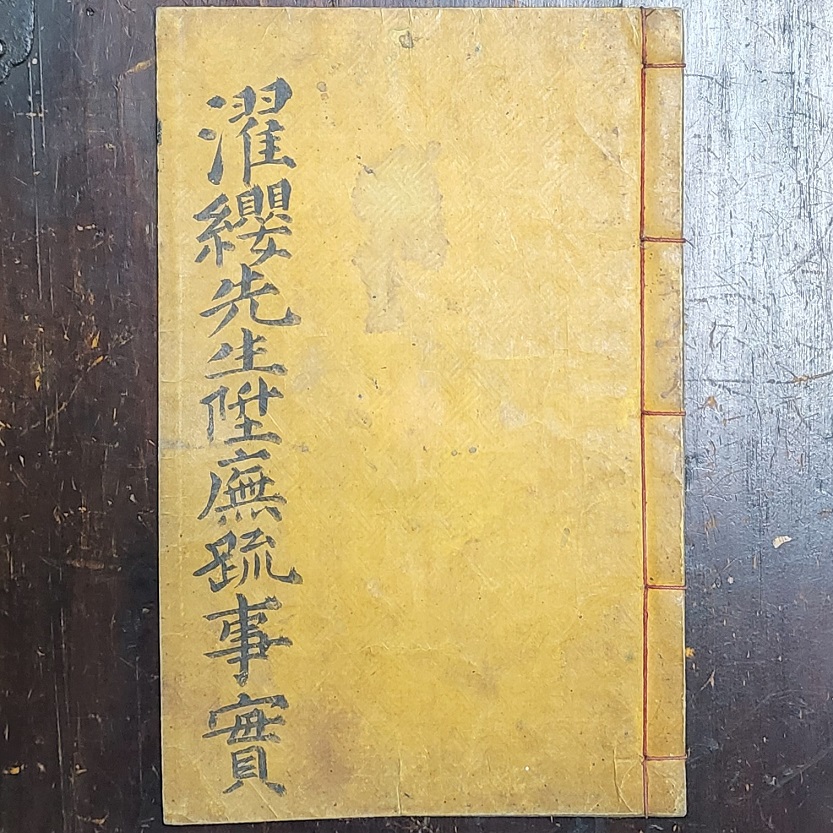 濯纓先生陞廡疏事實